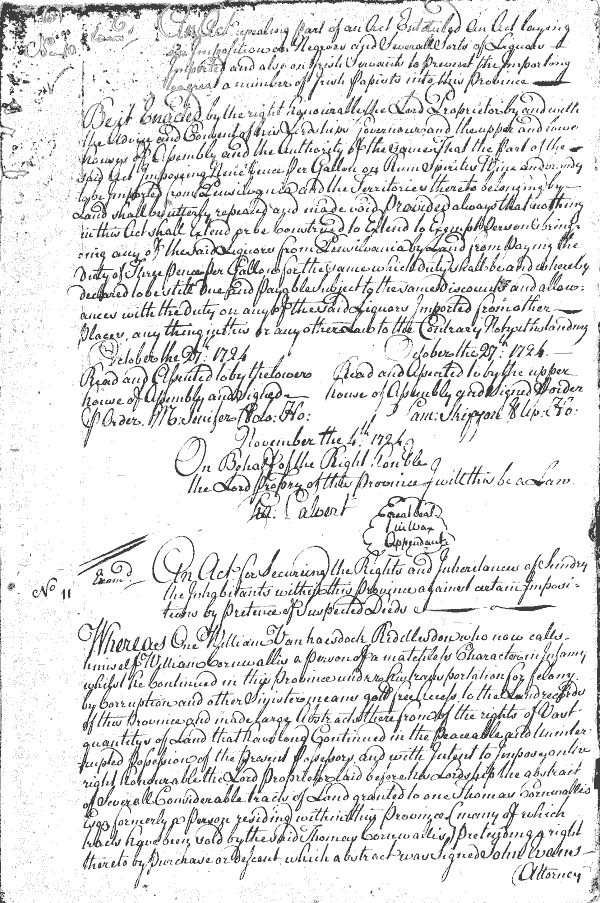 No. 10 Exam'd An Act repealing part of an Act Entituled An Act laying
an Imposition on Negroes and Severall Sorts of Liquors
Imported and also on Irish Servants to prevent the Importing
too great a number of Irish Papists into this Province
Be it Enacted by the right honourable the Lord Proprietor by and with
the advice and Consent of his Lordships Governour and the upper and lower
houses of Assembly and the Authority of the same That the part of the
said Act Imposing Nine Pence per Gallon on Rum Spirits Wine and Brandy
to be Imported from Pensilvania and the Territories thereto belonging by
Land shall be utterly repealed and made void Provided always that nothing
in this Act shall Extend or be construed to Extend to Exempt Persons bring-
ing any of the said Liquors from Pensilvania by Land from Paying the
duty of Three Pence per Gallon for the same which duty shall be and is hereby
declared to be still Due and Payable subject to the same discounts and allow-
ances with the duty on any of the said Liquors Imported from other
Places, any thing in this or any other Law to the Contrary Notwithstanding
October the 27th. 1724 October the 27th. 1724
Read and Assented to by the lower Read and Assented to by the upper
house of Assembly and Signed house of Assembly and Signed P order
P Order. M: Jenifer Cl. Lo: Ho: Sam: Skippon Cl Up: Ho:
November the 4th. 1724
On Behalf of the Right Honble
the Lord Propry of this Province I will this be a Law
Cha: Calvert
Great Seal
in Wax
Appendant
No. 11 Exam'd An Act for Securing the Rights and Inheritances of Sundry
the Inhabitants within this Province against certain Imposi-
tions by Pretence of Suspected Deeds
Whereas One William Vanhaesdock Riddlesdon who now calls
himself William Cornwallis a Person of a matchless Character in Infamy
whilst he Continued in this Province under his transportation for felony
by Corruption and other Sinister means got free access to the Land records
of this Province and made large Abstracts there from of the rights of Vast
quantitys of Land that have long Continued in the Peaceable and uninter-
rupted Possession of the Present Possessors and with Intent to Impose on the
right honourable the Lord Proprietor laid before his Lordship the abstract
of Severall Considerable tracts of Land granted to one Thomas Cornwallis
Esqr formerly a Person residing within this Province (many of which
tracts have been sold by the said Thomas Cornwallis) Pretending a right
thereto by Purchase or Descent which abstract was signed John Evans
(Attorney